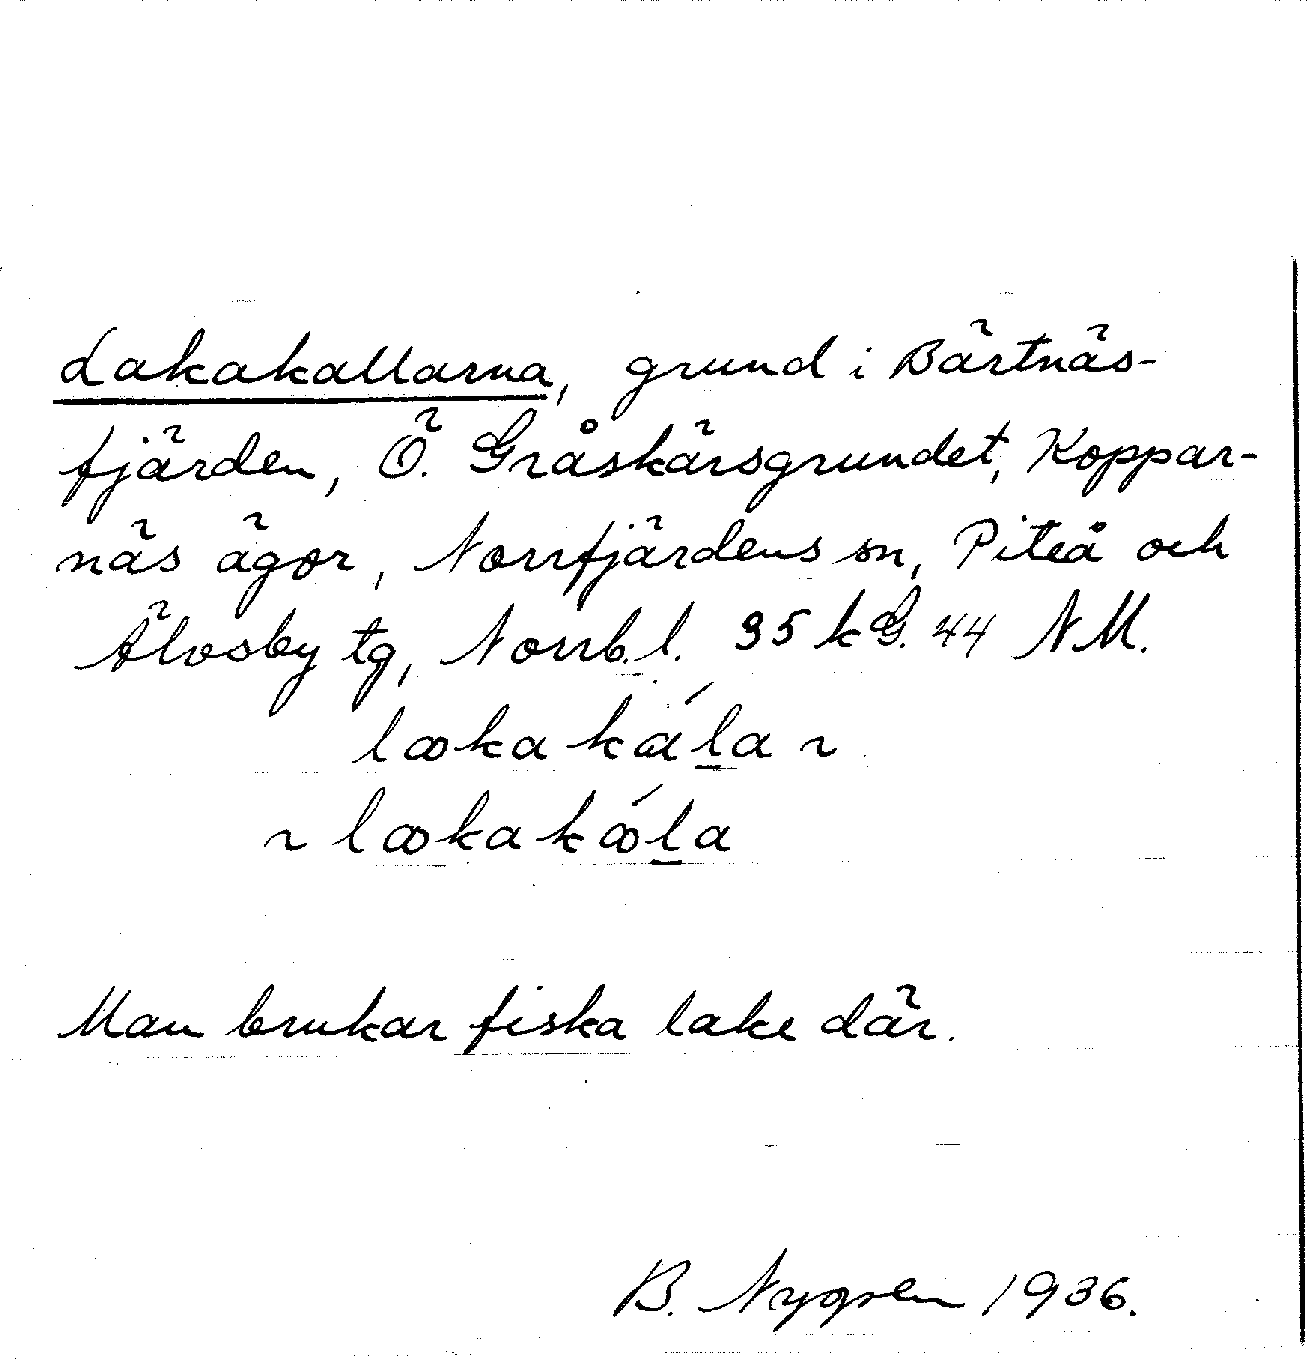 Lakakallarna, grund i Bärtnäs-
fjärden, Ö. Gråskärsgrundet, Koppar-
näs ägor, Norrfjärdens sn, Piteå och
Älvsby tg, Norrb. l. 35 k G. 44 NM.
lꝏkaká̱la ~
~ lꝏkakꝏ́l̲a
Man brukar fiska lake där.
B. Nygren 1936.